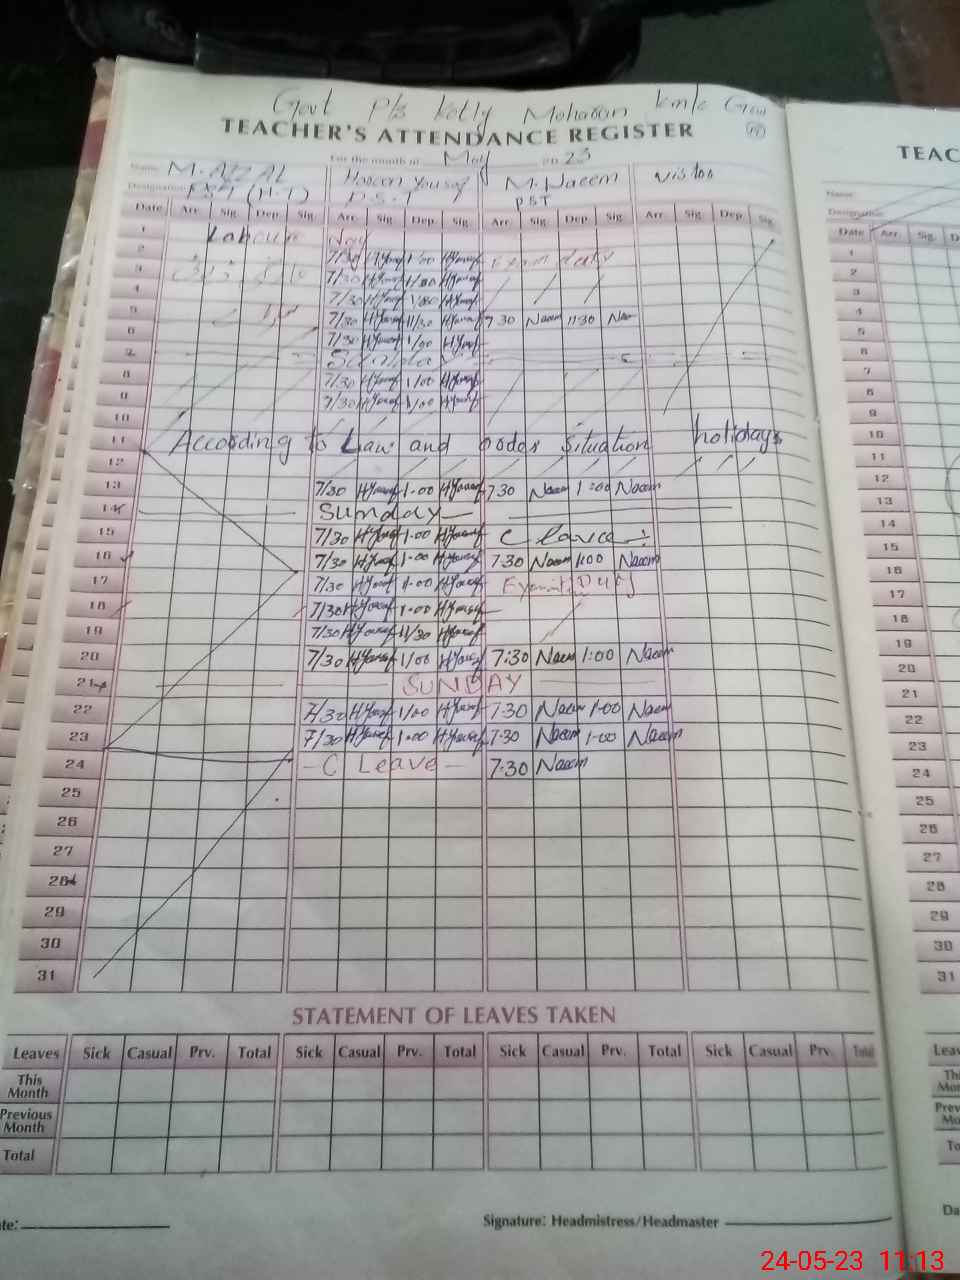 Govt P/s Kotly Mohasan
TEACHER'S ATTENDANCE REGISTER
TEAC
For the month of May 23
Name: M. AFZAL
Haroon Yousaf M. Naeem
Designation: (H-T) P.S.T PST
Name:
Designation:
Date Arr. Sig. Dep. Sig. Arr. Sig. Dep. Sig. Arr. Sig. Dep Sig. Arr. Sig. Dep. Sig.
Date Arr. Sig. D
1 Labour Day
2 7/30 H.Yousaf 1/00 H.Yousaf Exam duty
3 7/30 H.Yousaf 1/00 H.Yousaf
4 7/30 H.Yousaf 1/00 H.Yousaf
5 7/30 H.Yousaf 11/30 H.Yousaf 7 30 Naeem 11 30 Nae
6 7/30 H.Yousaf 1/00 H.Yousaf
7 Sunday
8 7/30 H.Yousaf 1/00 H.Yousaf
9 7/30 H.Yousaf 1/00 H.Yousaf
10
11 According to Law and order Situation holidays
12
13 7/30 H.Yousaf 1-00 H.Yousaf 7 30 Naeem 1:00 Naeem
14 Sunday
15 7/30 H.Yousaf 1-00 H.Yousaf C Leave
16 7/30 H.Yousaf 1-00 H.Yousaf 7-30 Naeem 1:00 Naeem
17 7/30 H.Yousaf 1-00 H.Yousaf Duty
18 7/30 H.Yousaf 1-00 H.Yousaf
19 7/30 H.Yousaf 11/30 H.Yousaf
20 7/30 H.Yousaf 1/00 H.Yousaf 7:30 Naeem 1:00 Naeem
21 SUNDAY
22 7/30 H.Yousaf 1/00 H.Yousaf 7-30 Naeem 1-00 Naeem
23 7/30 H.Yousaf 1-00 H.Yousaf 7-30 Naeem 1-00 Naeem
24 - C Leave - 7-30 Naeem
25
26
27
28
29
30
31
1
2
3
4
5
6
7
8
9
10
11
12
13
14
15
16
17
18
19
20
21
22
23
24
25
26
27
28
29
30
31
STATEMENT OF LEAVES TAKEN
Leaves Sick Casual Prv. Total Sick Casual Prv. Total Sick Casual Prv. Total Sick Casual Prv. Total
This
Month
Previous
Month
Total
Leav
Th
Mo
Prev
Mo
To
te:
Signature: Headmistress/Headmaster
Da
24-05-23 11:13